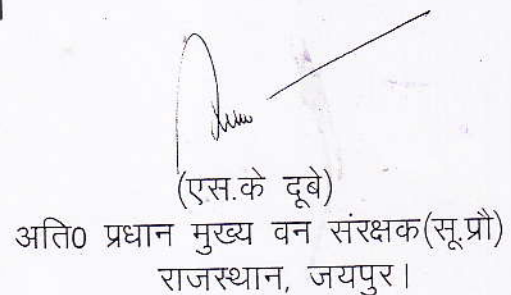 (एस.के दूबे)
अति0 प्रधान मुख्य वन संरक्षक(सू.प्रौ)
राजस्थान, जयपुर।